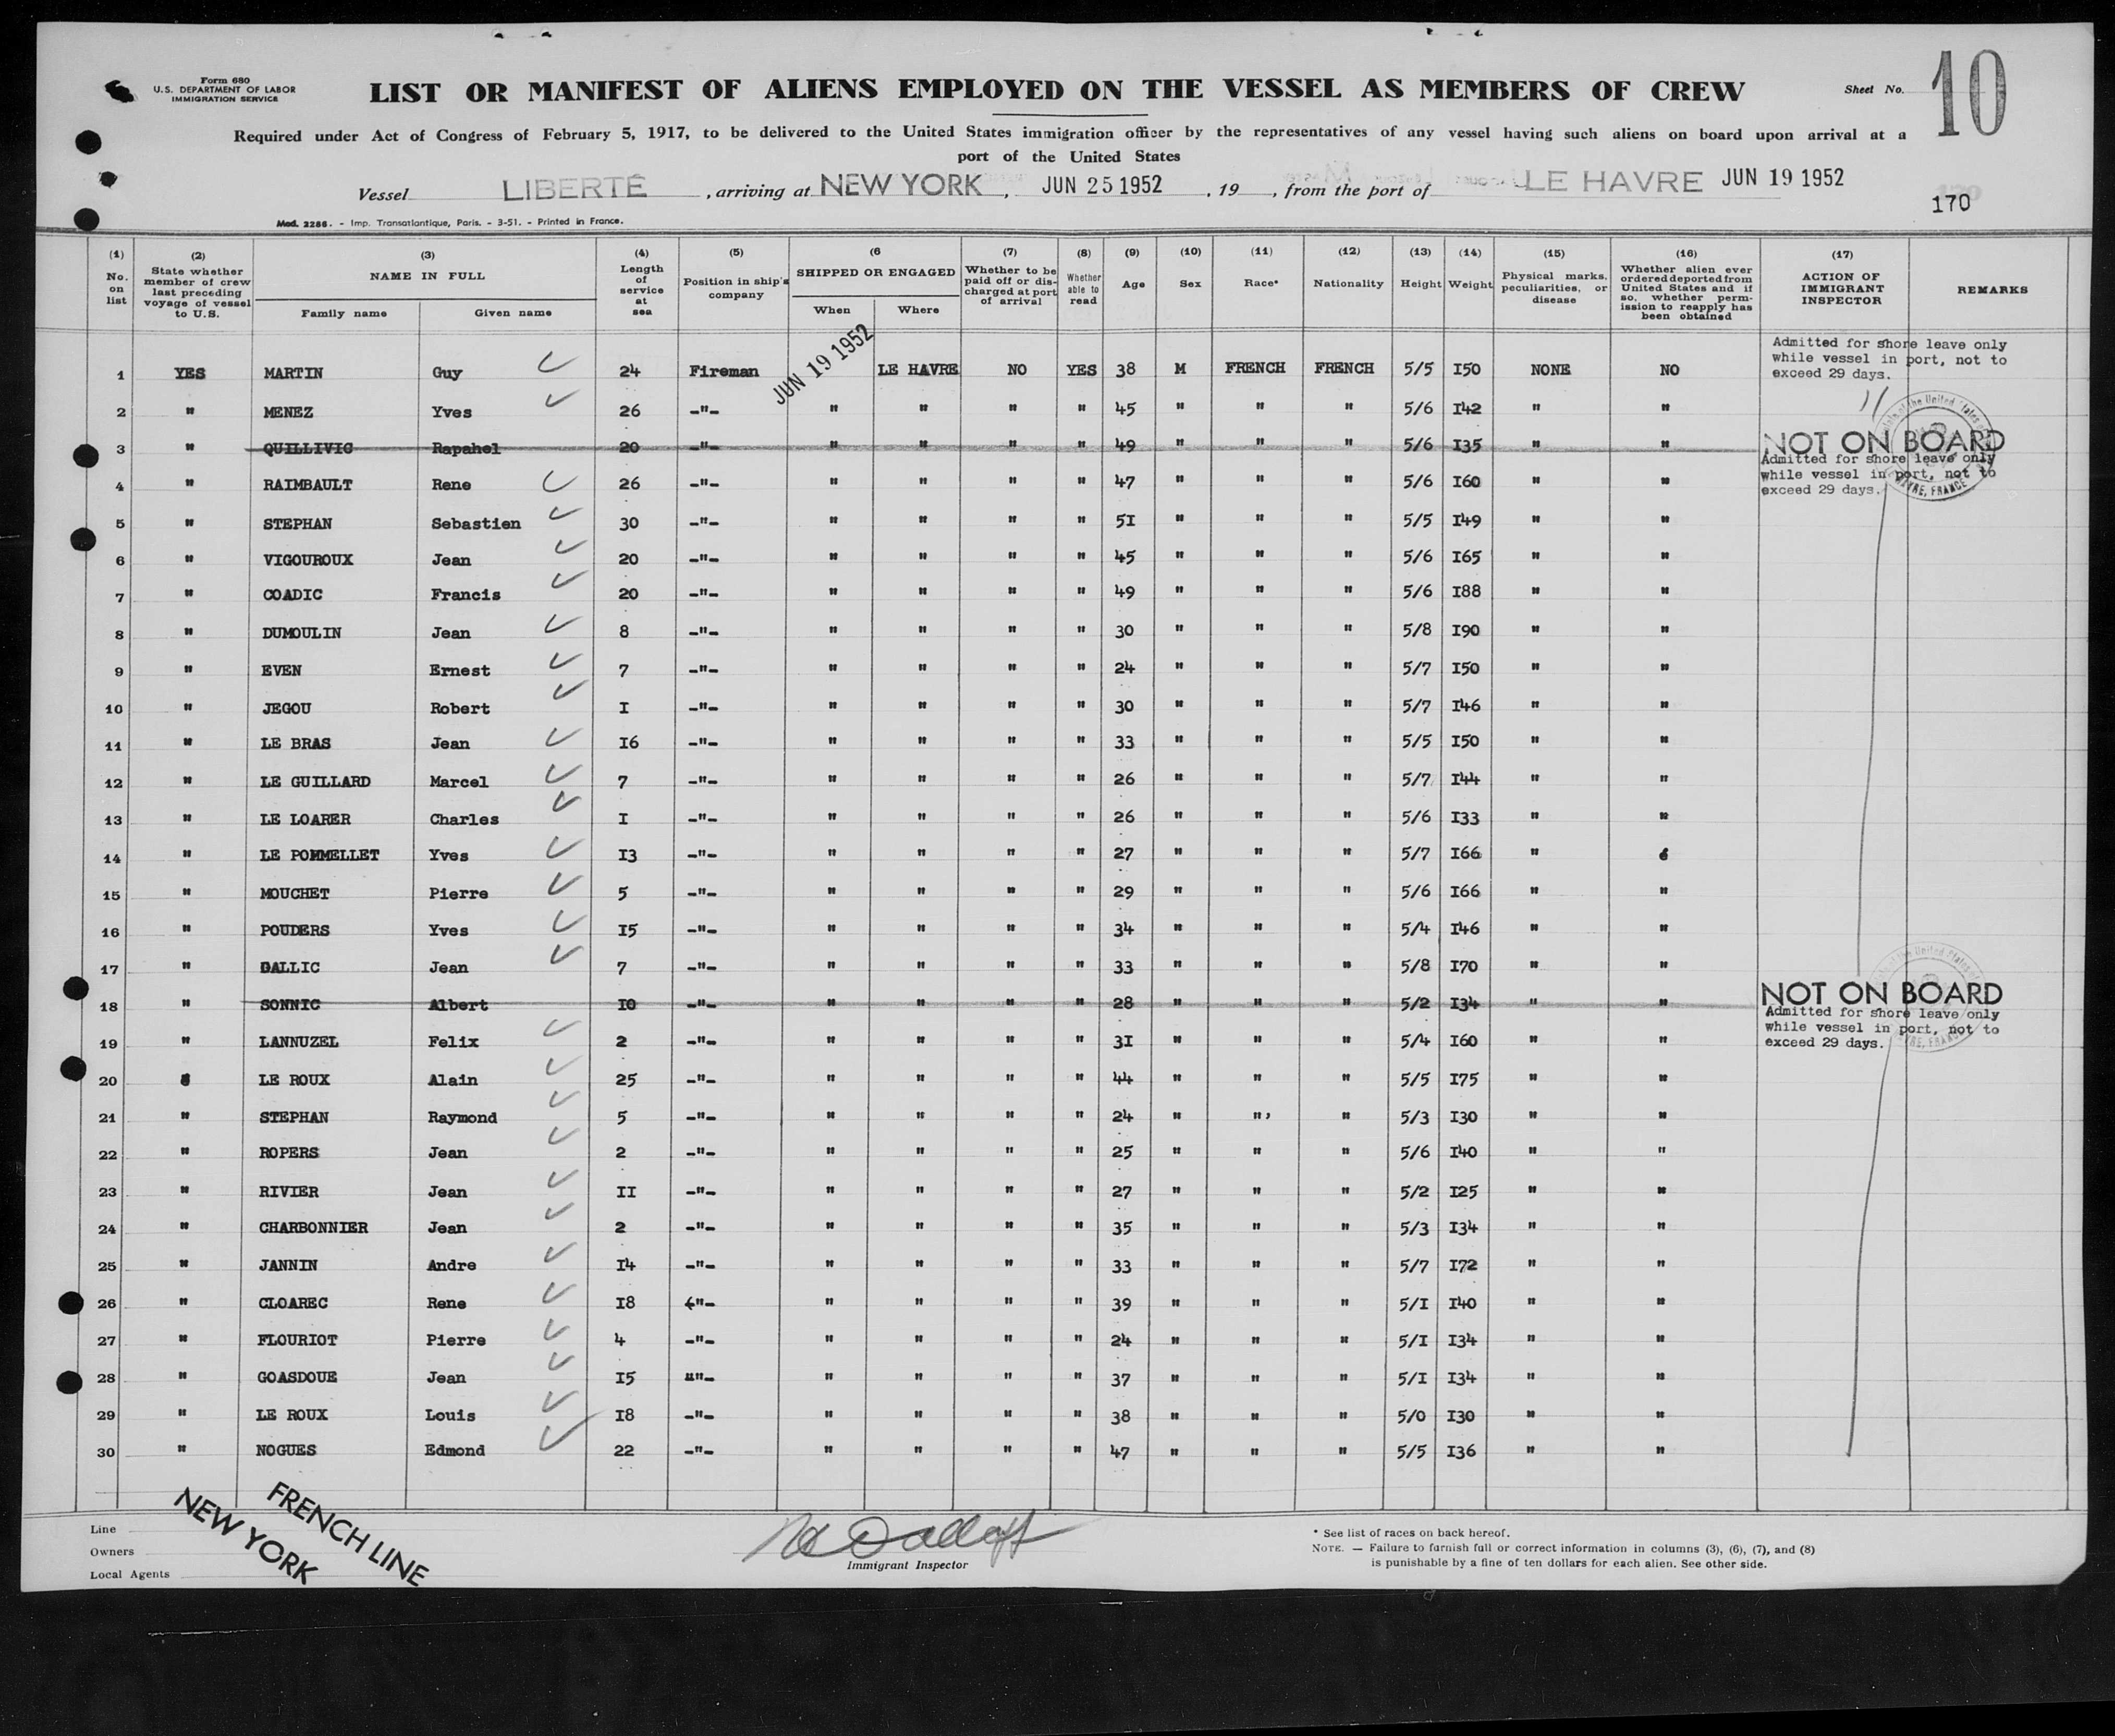 Form 680
U.S. DEPARTMENT OF LABOR
IMMIGRATION SERVICE
LIST OR MANIFEST OF ALIENS EMPLOYED ON THE VESSEL AS MEMBERS OF CREW
Sheet No. 10
Required under Act of Congress of February 5, 1917, to be delivered to the United States immigration officer by the representatives of any vessel having such aliens on board upon arrival at a
port of the United States
Vessel LIBERTÉ , arriving at NEW YORK , JUN 25 1952 , 19 , from the port of LE HAVRE JUN 19 1952
170
Mod. 2286. - Imp. Transatlantique, Paris. - 3-51. - Printed in France.
(1) No. on list (2) State whether member of crew last preceding voyage of vessel to U.S. (3) NAME IN FULL Family name Given name (4) Length of service at sea (5) Position in ship's company (6 SHIPPED OR ENGAGED When Where (7) Whether to be paid off or discharged at port of arrival (8) Whether able to read (9) Age (10) Sex (11) Race* (12) Nationality (13) Height (14) Weight (15) Physical marks, peculiarities, or disease (16) Whether alien ever ordered deported from United States and if so, whether permission to reapply has been obtained (17) ACTION OF IMMIGRANT INSPECTOR REMARKS
1 YES MARTIN Guy 24 Fireman JUN 19 1952 LE HAVRE NO YES 38 M FRENCH FRENCH 5/5 I50 NONE NO Admitted for shore leave only while vessel in port, not to exceed 29 days.
2 " MENEZ Yves 26 -"- " " " " 45 " " " 5/6 I42 " "
3 " QUILLIVIC Rapahel 20 -"- " " " " 49 " " " 5/6 I35 " " NOT ON BOARD
4 " RAIMBAULT Rene 26 -"- " " " " 47 " " " 5/6 I60 " " Admitted for shore leave only while vessel in port, not to exceed 29 days.
5 " STEPHAN Sebastien 30 -"- " " " " 5I " " " 5/5 I49 " "
6 " VIGOUROUX Jean 20 -"- " " " " 45 " " " 5/6 I65 " "
7 " COADIC Francis 20 -"- " " " " 49 " " " 5/6 I88 " "
8 " DUMOULIN Jean 8 -"- " " " " 30 " " " 5/8 I90 " "
9 " EVEN Ernest 7 -"- " " " " 24 " " " 5/7 I50 " "
10 " JEGOU Robert I -"- " " " " 30 " " " 5/7 I46 " "
11 " LE BRAS Jean I6 -"- " " " " 33 " " " 5/5 I50 " "
12 " LE GUILLARD Marcel 7 -"- " " " " 26 " " " 5/7 I44 " "
13 " LE LOARER Charles I -"- " " " " 26 " " " 5/6 I33 " "
14 " LE POMMELLET Yves I3 -"- " " " " 27 " " " 5/7 I66 "
15 " MOUCHET Pierre 5 -"- " " " " 29 " " " 5/6 I66 " "
16 " POUDERS Yves I5 -"- " " " " 34 " " " 5/4 I46 " "
17 " GALLIC Jean 7 -"- " " " " 33 " " " 5/8 I70 " "
18 " SONNIC Albert I0 -"- " " " " 28 " " " 5/2 I34 " " NOT ON BOARD
19 " LANNUZEL Felix 2 -"- " " " " 3I " " " 5/4 I60 " " Admitted for shore leave only while vessel in port, not to exceed 29 days.
20 LE ROUX Alain 25 -"- " " " " 44 " " " 5/5 I75 " "
21 " STEPHAN Raymond 5 -"- " " " " 24 " " " 5/3 I30 " "
22 " ROPERS Jean 2 -"- " " " " 25 " " " 5/6 I40 " "
23 " RIVIER Jean II -"- " " " " 27 " " " 5/2 I25 " "
24 " CHARBONNIER Jean 2 -"- " " " " 35 " " " 5/3 I34 " "
25 " JANNIN Andre I4 -"- " " " " 33 " " " 5/7 I72 " "
26 " CLOAREC Rene I8 ("- " " " " 39 " " " 5/I I40 " "
27 " FLOURIOT Pierre 4 -"- " " " " 24 " " " 5/I I34 " "
28 " GOASDOUE Jean I5 ""- " " " " 37 " " " 5/I I34 " "
29 " LE ROUX Louis I8 -"- " " " " 38 " " " 5/0 I30 " "
30 " NOGUES Edmond 22 -"- " " " " 47 " " " 5/5 I36 " "
FRENCH LINE
NEW YORK
Line
Owners
Local Agents
Immigrant Inspector
* See list of races on back hereof.
NOTE. — Failure to furnish full or correct information in columns (3), (6), (7), and (8)
is punishable by a fine of ten dollars for each alien. See other side.